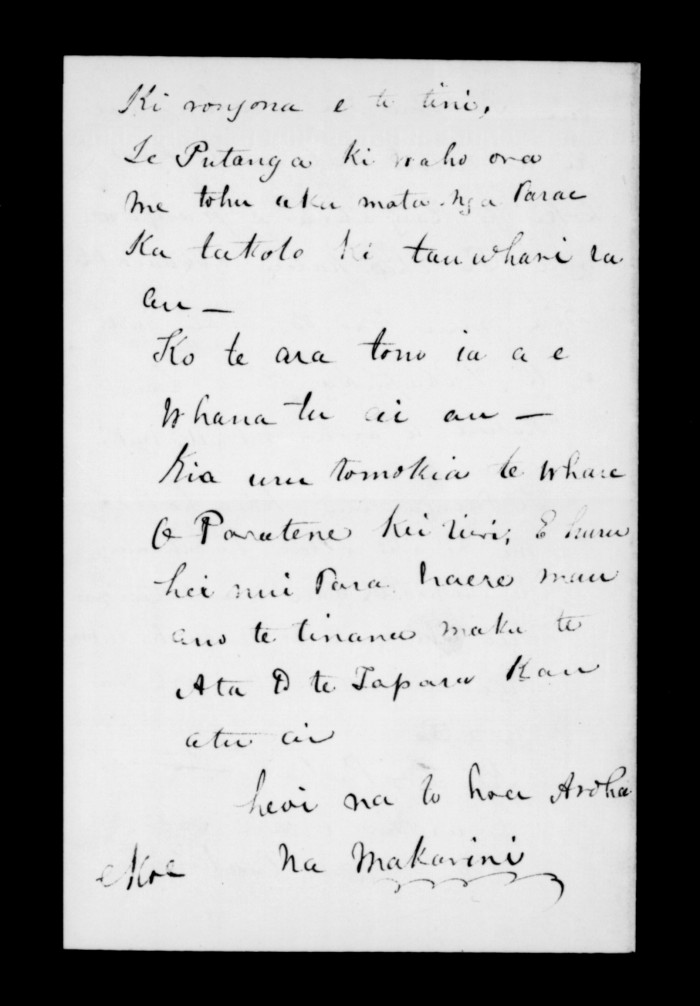 Ki rongona e te tini,
Te Putanga ki waho ora
me tohu aku mata nga Parae
Ka takoto ki tauwhare ra
au —
Ko te ara tono ia a e
Whana tu ai au —
Kia uru tomokia te Whare
O Paratene ki E huru
hei nui Para haere mau
ano te tinana maku te
Ata O te Tapara Kau
atu ai
heoi na to hoa Aroha
Na Makarini